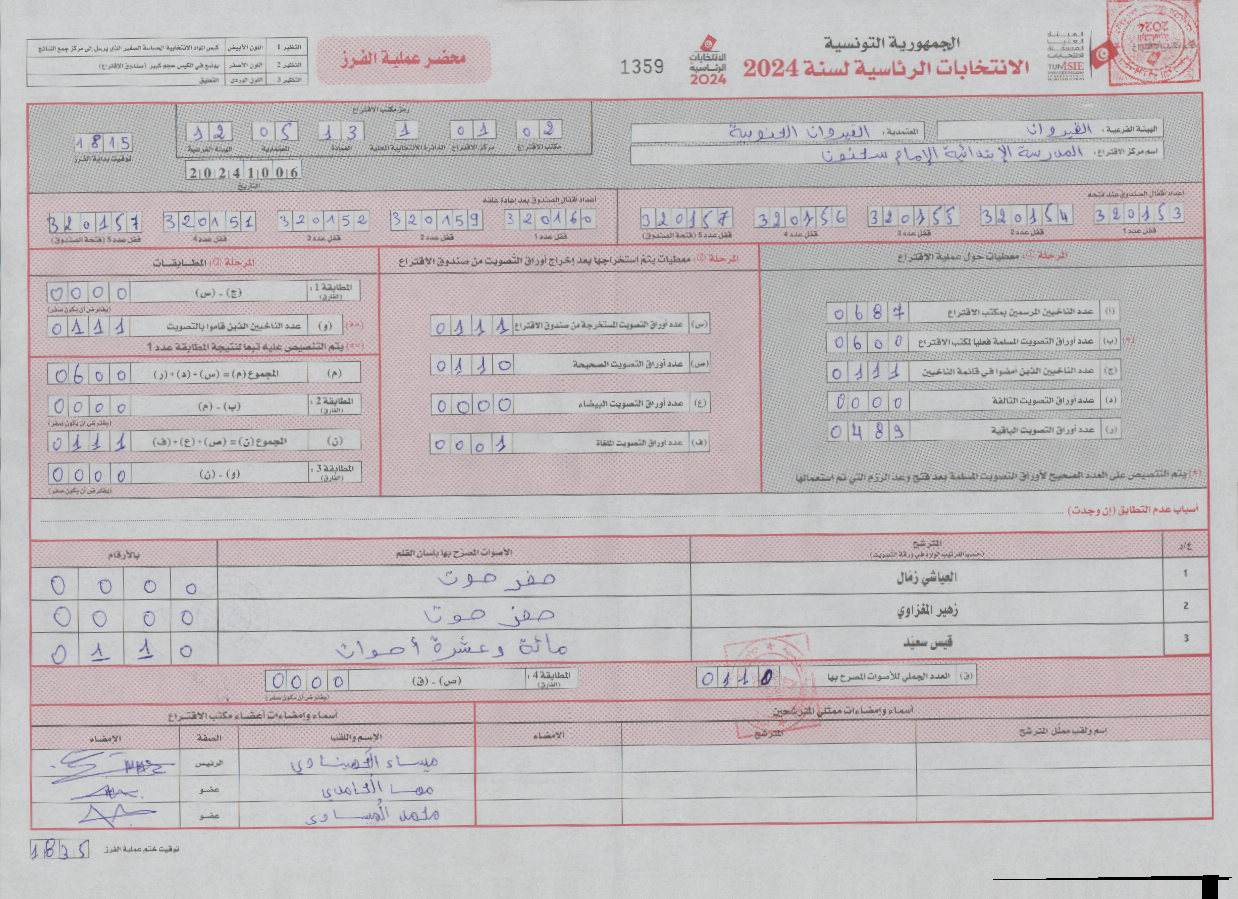 الجمهورية التونسية
الانتخابات الرئاسية لسنة 2024
الهيئة
العليا
المستقلة
للانتخابات
TUNISIE
الانتخابات
الرئاسية
2024
1359
محضر عملية الفرز
النظير 1 اللون الأبيض كيس المواد الانتخابية الحساسة الصغير الذي يرسل إلى مركز جمع النتائج
النظير 2 اللون الأصفر يوضع في الكيس حجم كبير (صندوق الاقتراع)
النظير 3 اللون الوردي التعليق
الهيئة الفرعية : القيروان المعتمدية : القيروان الجنوبية
اسم مركز الاقتراع : المدرسة الإبتدائية الإمام سحنون
رمز مكتب الاقتراع
02 01 1 13 05 12
مكتب الاقتراع مركز الاقتراع الدائرة الانتخابية المحلية العمادة المعتمدية الهيئة الفرعية
1815
توقيت بداية الفرز
20241006
التاريخ
أعداد أقفال الصندوق عند فتحه
320153 320154 320155 320156 320157
قفل عدد 1 قفل عدد 2 قفل عدد 3 قفل عدد 4 قفل عدد 5 (فتحة الصندوق)
أعداد أقفال الصندوق بعد إعادة غلقه
320160 320159 320152 320151 320157
قفل عدد 1 قفل عدد 2 قفل عدد 3 قفل عدد 4 قفل عدد 5 (فتحة الصندوق)
المرحلة ①: معطيات حول عملية الاقتراع
(أ) عدد الناخبين المرسمين بمكتب الاقتراع 0687
(*) (ب) عدد أوراق التصويت المسلمة فعليا لمكتب الاقتراع 0600
(ج) عدد الناخبين الذين أمضوا في قائمة الناخبين 0111
(د) عدد أوراق التصويت التالفة 0000
(ر) عدد أوراق التصويت الباقية 0489
(*) يتم التنصيص على العدد الصحيح لأوراق التصويت المسلمة بعد فتح وعد الرزم التي تم استعمالها
المرحلة ②: معطيات يتم استخراجها بعد إخراج أوراق التصويت من صندوق الاقتراع
(س) عدد أوراق التصويت المستخرجة من صندوق الاقتراع 0111
(ص) عدد أوراق التصويت الصحيحة 0110
(ع) عدد أوراق التصويت البيضاء 0000
(ف) عدد أوراق التصويت الملغاة 0001
المرحلة ③: المطابقات
المطابقة 1 : (الفارق) (ج) - (س) 0000
(يفترض أن يكون صفر)
(**) (و) عدد الناخبين الذين قاموا بالتصويت 0111
(**) يتم التنصيص عليه تبعا لنتيجة المطابقة عدد 1
(م) المجموع (م) = (س) + (د) + (ر) 0600
المطابقة 2 : (الفارق) (ب) - (م) 0000
(يفترض أن يكون صفر)
(ن) المجموع (ن) = (ص) + (ع) + (ف) 0111
المطابقة 3 : (الفارق) (و) - (ن) 0000
(يفترض أن يكون صفر)
أسباب عدم التطابق (إن وجدت)
ع/ر المترشح الأصوات المصرح بها بلسان القلم بالأرقام
(حسب الترتيب الوارد في ورقة التصويت)
1 العياشي زمال صفر صوت 0000
2 زهير المغزاوي صفر صوت 0000
3 قيس سعيد مائة وعشرة أصوات 0110
(ق) العدد الجملي للأصوات المصرح بها 0110
المطابقة 4 : (الفارق) (ص) - (ق) 0000
(يفترض أن يكون صفر)
أسماء وإمضاءات ممثلي المترشحين
اسم ولقب ممثل المترشح المترشح الامضاء
أسماء وإمضاءات أعضاء مكتب الاقتراع
الإسم واللقب الصفة الامضاء
ميساء الرئيس
مها الحامدي عضو
محمد العيساوي عضو
توقيت ختم عملية الفرز 1835